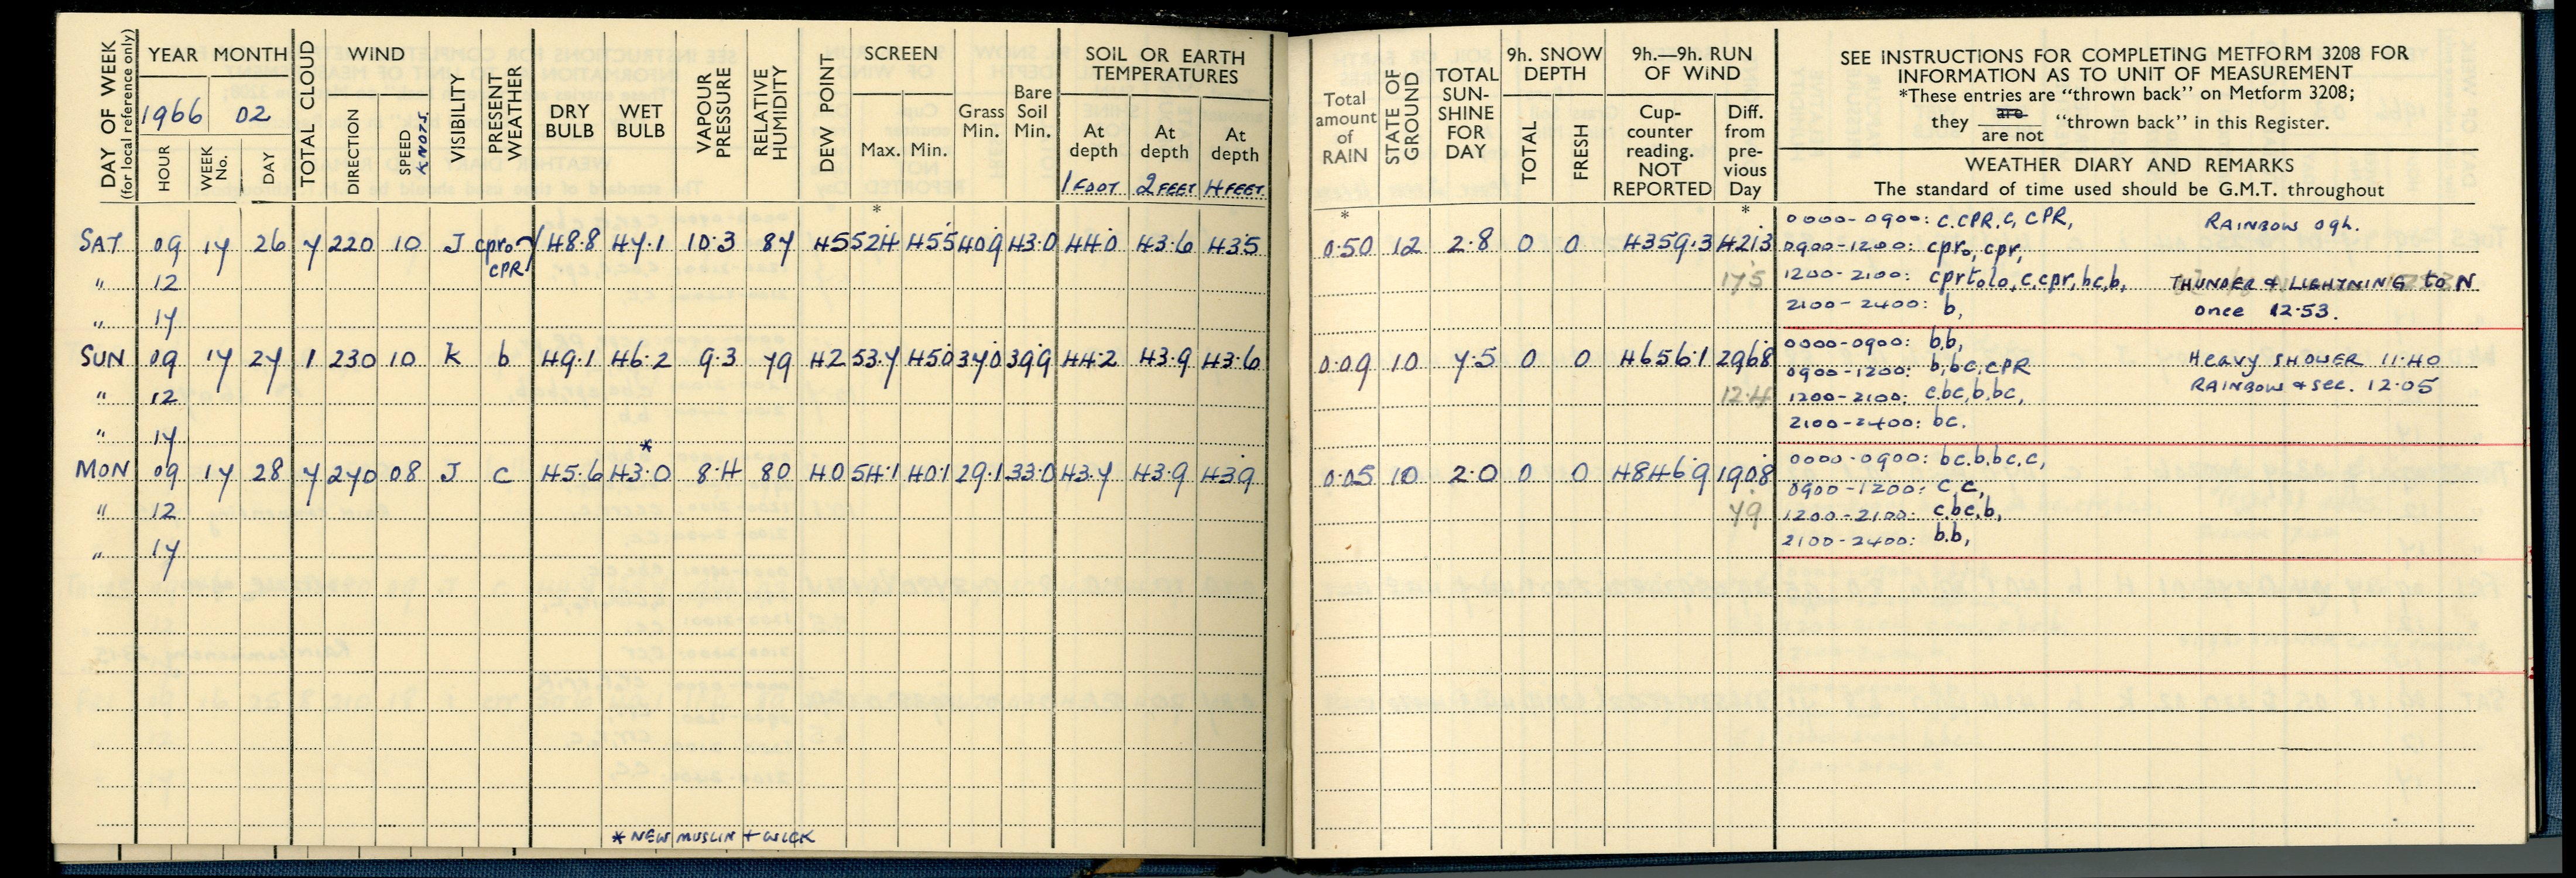 DAY OF WEEK (for local reference only)
YEAR MONTH
1966 02
HOUR WEEK No. DAY
TOTAL CLOUD
WIND
DIRECTION SPEED KNOTS.
VISIBILITY
PRESENT WEATHER
DRY BULB WET BULB
VAPOUR PRESSURE
RELATIVE HUMIDITY
DEW POINT
SCREEN
Max. Min.
Grass Min.
Bare Soil Min.
SOIL OR EARTH TEMPERATURES
At depth At depth At depth
1 FOOT 2 FEET 4 FEET
*
SAT 09 17 26 7 220 10 J cpr₀⌒/ 48.8 47.1 10.3 87 45 52.4 45.5 40.9 43.0 44.0 43.6 43.5
CPR
" 12
" 17
SUN 09 17 27 1 230 10 K b 49.1 46.2 9.3 79 42 53.7 45.0 37.0 39.9 44.2 43.9 43.6
" 12
" 17
*
MON 09 17 28 7 270 08 J c 45.6 43.0 8.4 80 40 54.1 40.1 29.1 33.0 43.7 43.9 43.9
" 12
" 17
* NEW MUSLIN + WICK
Total amount of RAIN
STATE OF GROUND
TOTAL SUN-SHINE FOR DAY
9h. SNOW DEPTH
TOTAL FRESH
9h.—9h. RUN OF WIND
Cup-counter reading. NOT REPORTED
Diff. from pre-vious Day
SEE INSTRUCTIONS FOR COMPLETING METFORM 3208 FOR
INFORMATION AS TO UNIT OF MEASUREMENT
*These entries are "thrown back" on Metform 3208;
they are / are not "thrown back" in this Register.
WEATHER DIARY AND REMARKS
The standard of time used should be G.M.T. throughout
* *
0000-0900: c.CPR.C, CPR, RAINBOW 09h.
0.50 12 2.8 0 0 4359.3 421.3 0900-1200: cpr₀, cpr,
17.5 1200-2100: cprtolo, c.cpr, bc, b, THUNDER & LIGHTNING to N
2100-2400: b, once 12.53.
0000-0900: b.b,
0.09 10 7.5 0 0 4656.1 296.8 0900-1200: b, bc, CPR Heavy SHOWER 11.40
12.4 1200-2100: c.bc, b.bc, RAINBOW & sec. 12.05
2100-2400: bc.
0000-0900: bc.b.bc.c,
0.05 10 2.0 0 0 4846.9 190.8 0900-1200: c.c,
7.9 1200-2100: c.bc.b,
2100-2400: b.b,